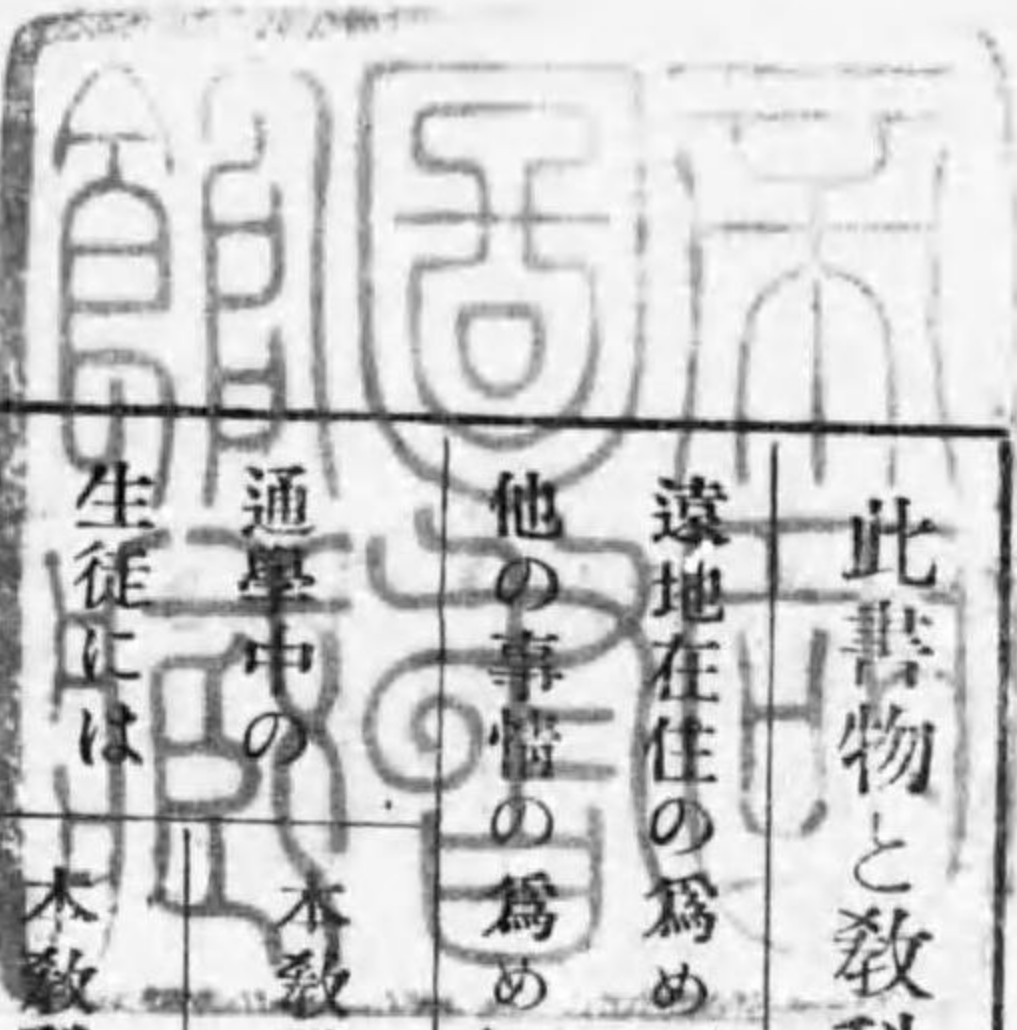 帝國
圖書
館藏
此書物と敎
遠地在住の爲め
他の事情の爲め
通學中の
生徒には
本敎
本敎